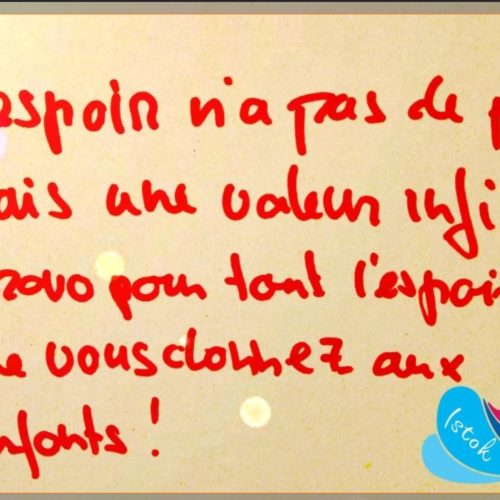 espoir n'a pas de p
ais une valeur infi
ravo pour tout l'espoir
e vous donnez aux
nfants !
Istok